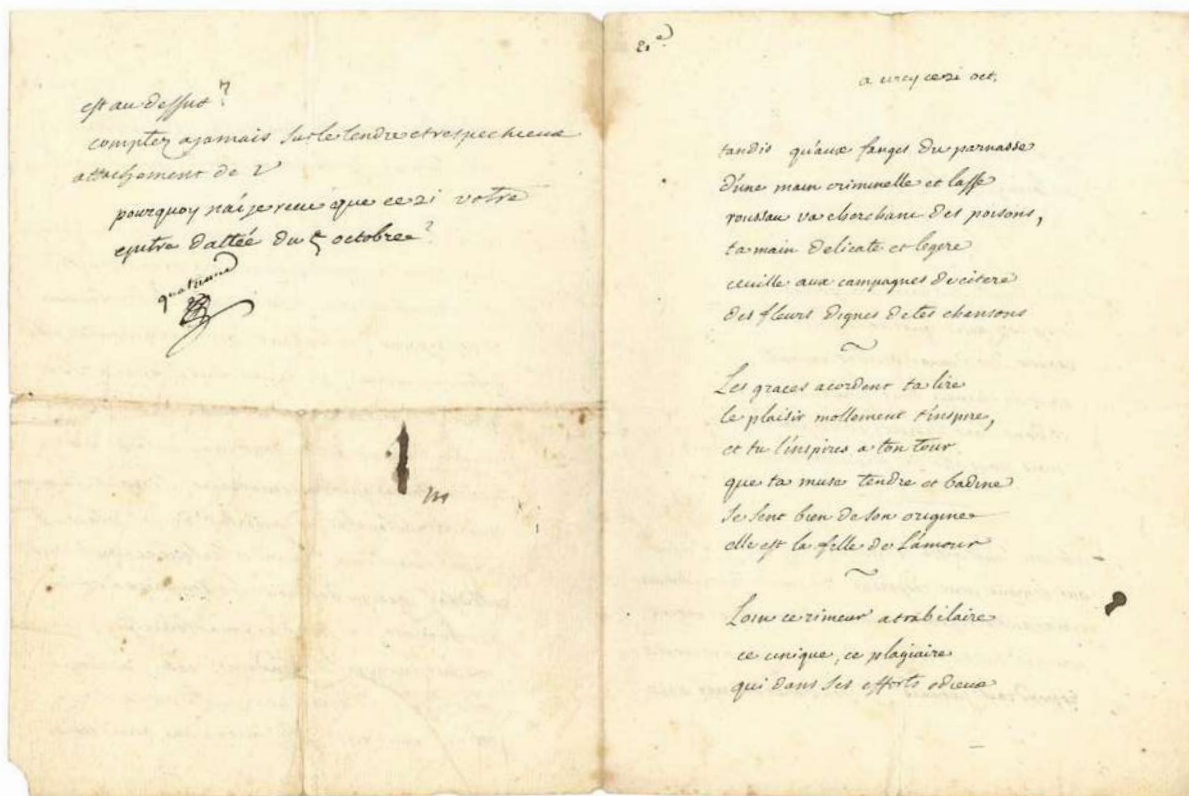 est au dessus?
comptez a jamais sur le tendre et respectueux
attachement de V
pourquoy nai je receu que ce 21 votre
epitre dattée du 5 octobre?
a cirey ce 21 oct.
tandis qu'aux fanges du parnasse
d'une main criminelle et lasse
roussau va cherchant des poisons,
ta main delicate et legere
ceuille aux campagnes de citere
des fleurs dignes de tes chansons
~
Les graces acordent ta lire
le plaisir mollement t'inspire,
et tu l'inspires a ton tour
que ta muse tendre et badine
se sent bien de son origine
elle est la fille de L'amour
~
Loin ce rimeur atrabilaire
ce cinique, ce plagiaire
qui dans ses efforts odieux